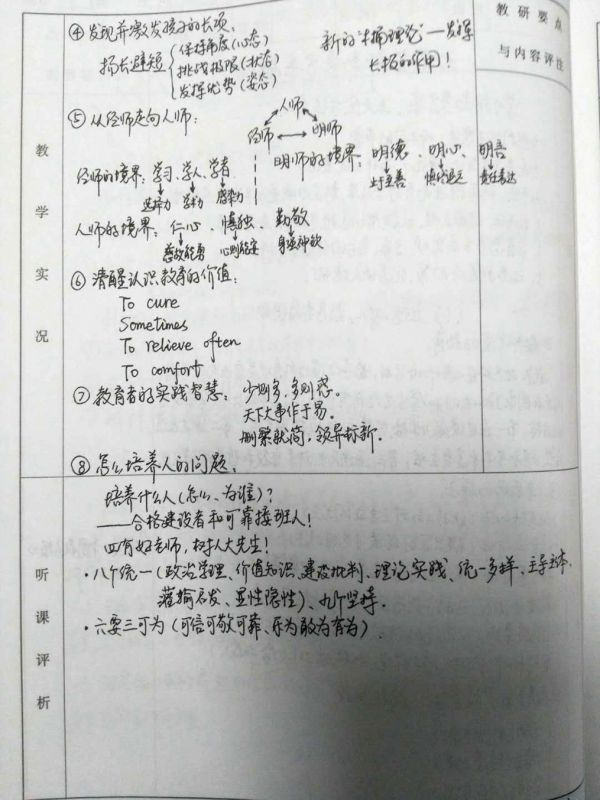 教研要点
与内容评注
教学实况
④发现并激发孩子的长项:
扬长避短
保持角度(心态)
挑战极限(状态)
发挥优势(姿态)
新的"木桶理论"—发挥
长板的作用!
⑤从经师走向人师:
人师
经师 明师
明师的境界: 明德、明心、明言
止于至善 责任表达
经师的境界: 学习、学人、学者
人师的境界: 仁心、慎独、勤敬
⑥清醒认识教育的价值:
To cure
Sometimes
To relieve often
To comfort
⑦教育者的实践智慧: 少则多,多则惑。
天下大事作于易。
删繁就简,领异标新。
⑧怎么培养人的问题。
听课评析
培养什么人(怎么、为谁)?
——合格建设者和可靠接班人!
四有好老师,树人大先生!
·八个统一(政治学理、价值知识、建设批判、理论实践、统一多样、主导主体、
灌输启发、显性隐性)、九个坚持。
·六要三可为(可信可敬可靠、乐为敢为有为)